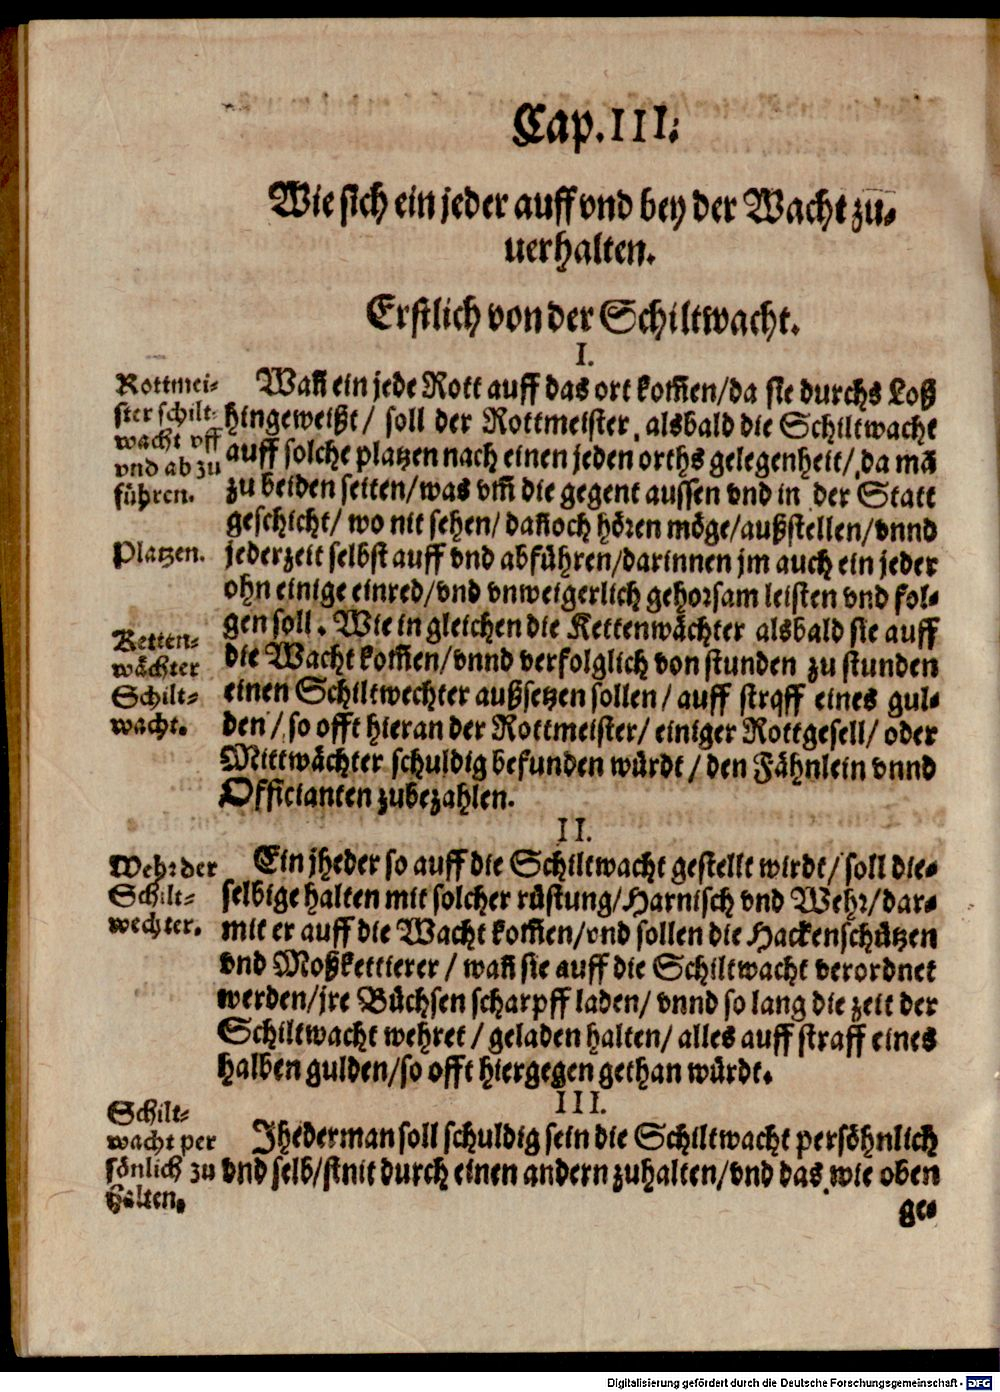 Cap. III.
Wie sich ein jeder auff vnd bey der Wacht zu-
uerhalten.
Erstlich von der Schiltwacht.
I.
Rottmei-
ster schilt-
wacht vff
vnd ab zu
führen.
Platzen.
Wañ ein jede Rott auff das ort kom̃en/da sie durchs Loß
hingeweißt/ soll der Rottmeister, alsbald die Schiltwacht
auff solche platzen nach einen jeden orths gelegenheit/ da mã
zu beiden seiten/was vm̃ die gegent aussen vnd in der Statt
geschicht/ wo nit sehen/ dañoch hören möge/außstellen/vnnd
jederzeit selbst auff vnd abführen/darinnen jm auch ein jeder
ohn einige einred/vnd vnweigerlich gehorsam leisten vnd fol-
gen soll. Wie in gleichen die Kettenwächter alsbald sie auff
die Wacht kom̃en/vnnd verfolglich von stunden zu stunden
einen Schiltwechter außsetzen sollen/ auff straff eines gul-
den/ so offt hieran der Rottmeister/ einiger Rottgesell/ oder
Mittwächter schuldig befunden würdt/ den Fähnlein vnnd
Officianten zubezahlen.
Ketten-
wächter
Schilt-
wacht.
II.
Wehr der
Schilt-
wechter.
Ein jheder so auff die Schiltwacht gestellt wirdt/ soll die-
selbige halten mit solcher rüstung/Harnisch vnd Wehr/dar-
mit er auff die Wacht kom̃en/vnd sollen die Hackenschützen
vnd Moßkettierer/ wañ sie auff die Schiltwacht verordnet
werden/jre Büchsen scharpff laden/ vnnd so lang die zeit der
Schiltwacht wehret/ geladen halten/ alles auff straff eines
halben gulden/so offt hiergegen gethan würdt.
III.
Schilt-
wacht per
sönlich zu
halten.
Jhederman soll schuldig sein die Schiltwacht persöhnlich
vnd selb/st nit durch einen andern zuhalten/vnd das wie oben
ge-
Digitalisierung gefördert durch die Deutsche Forschungsgemeinschaft - DFG